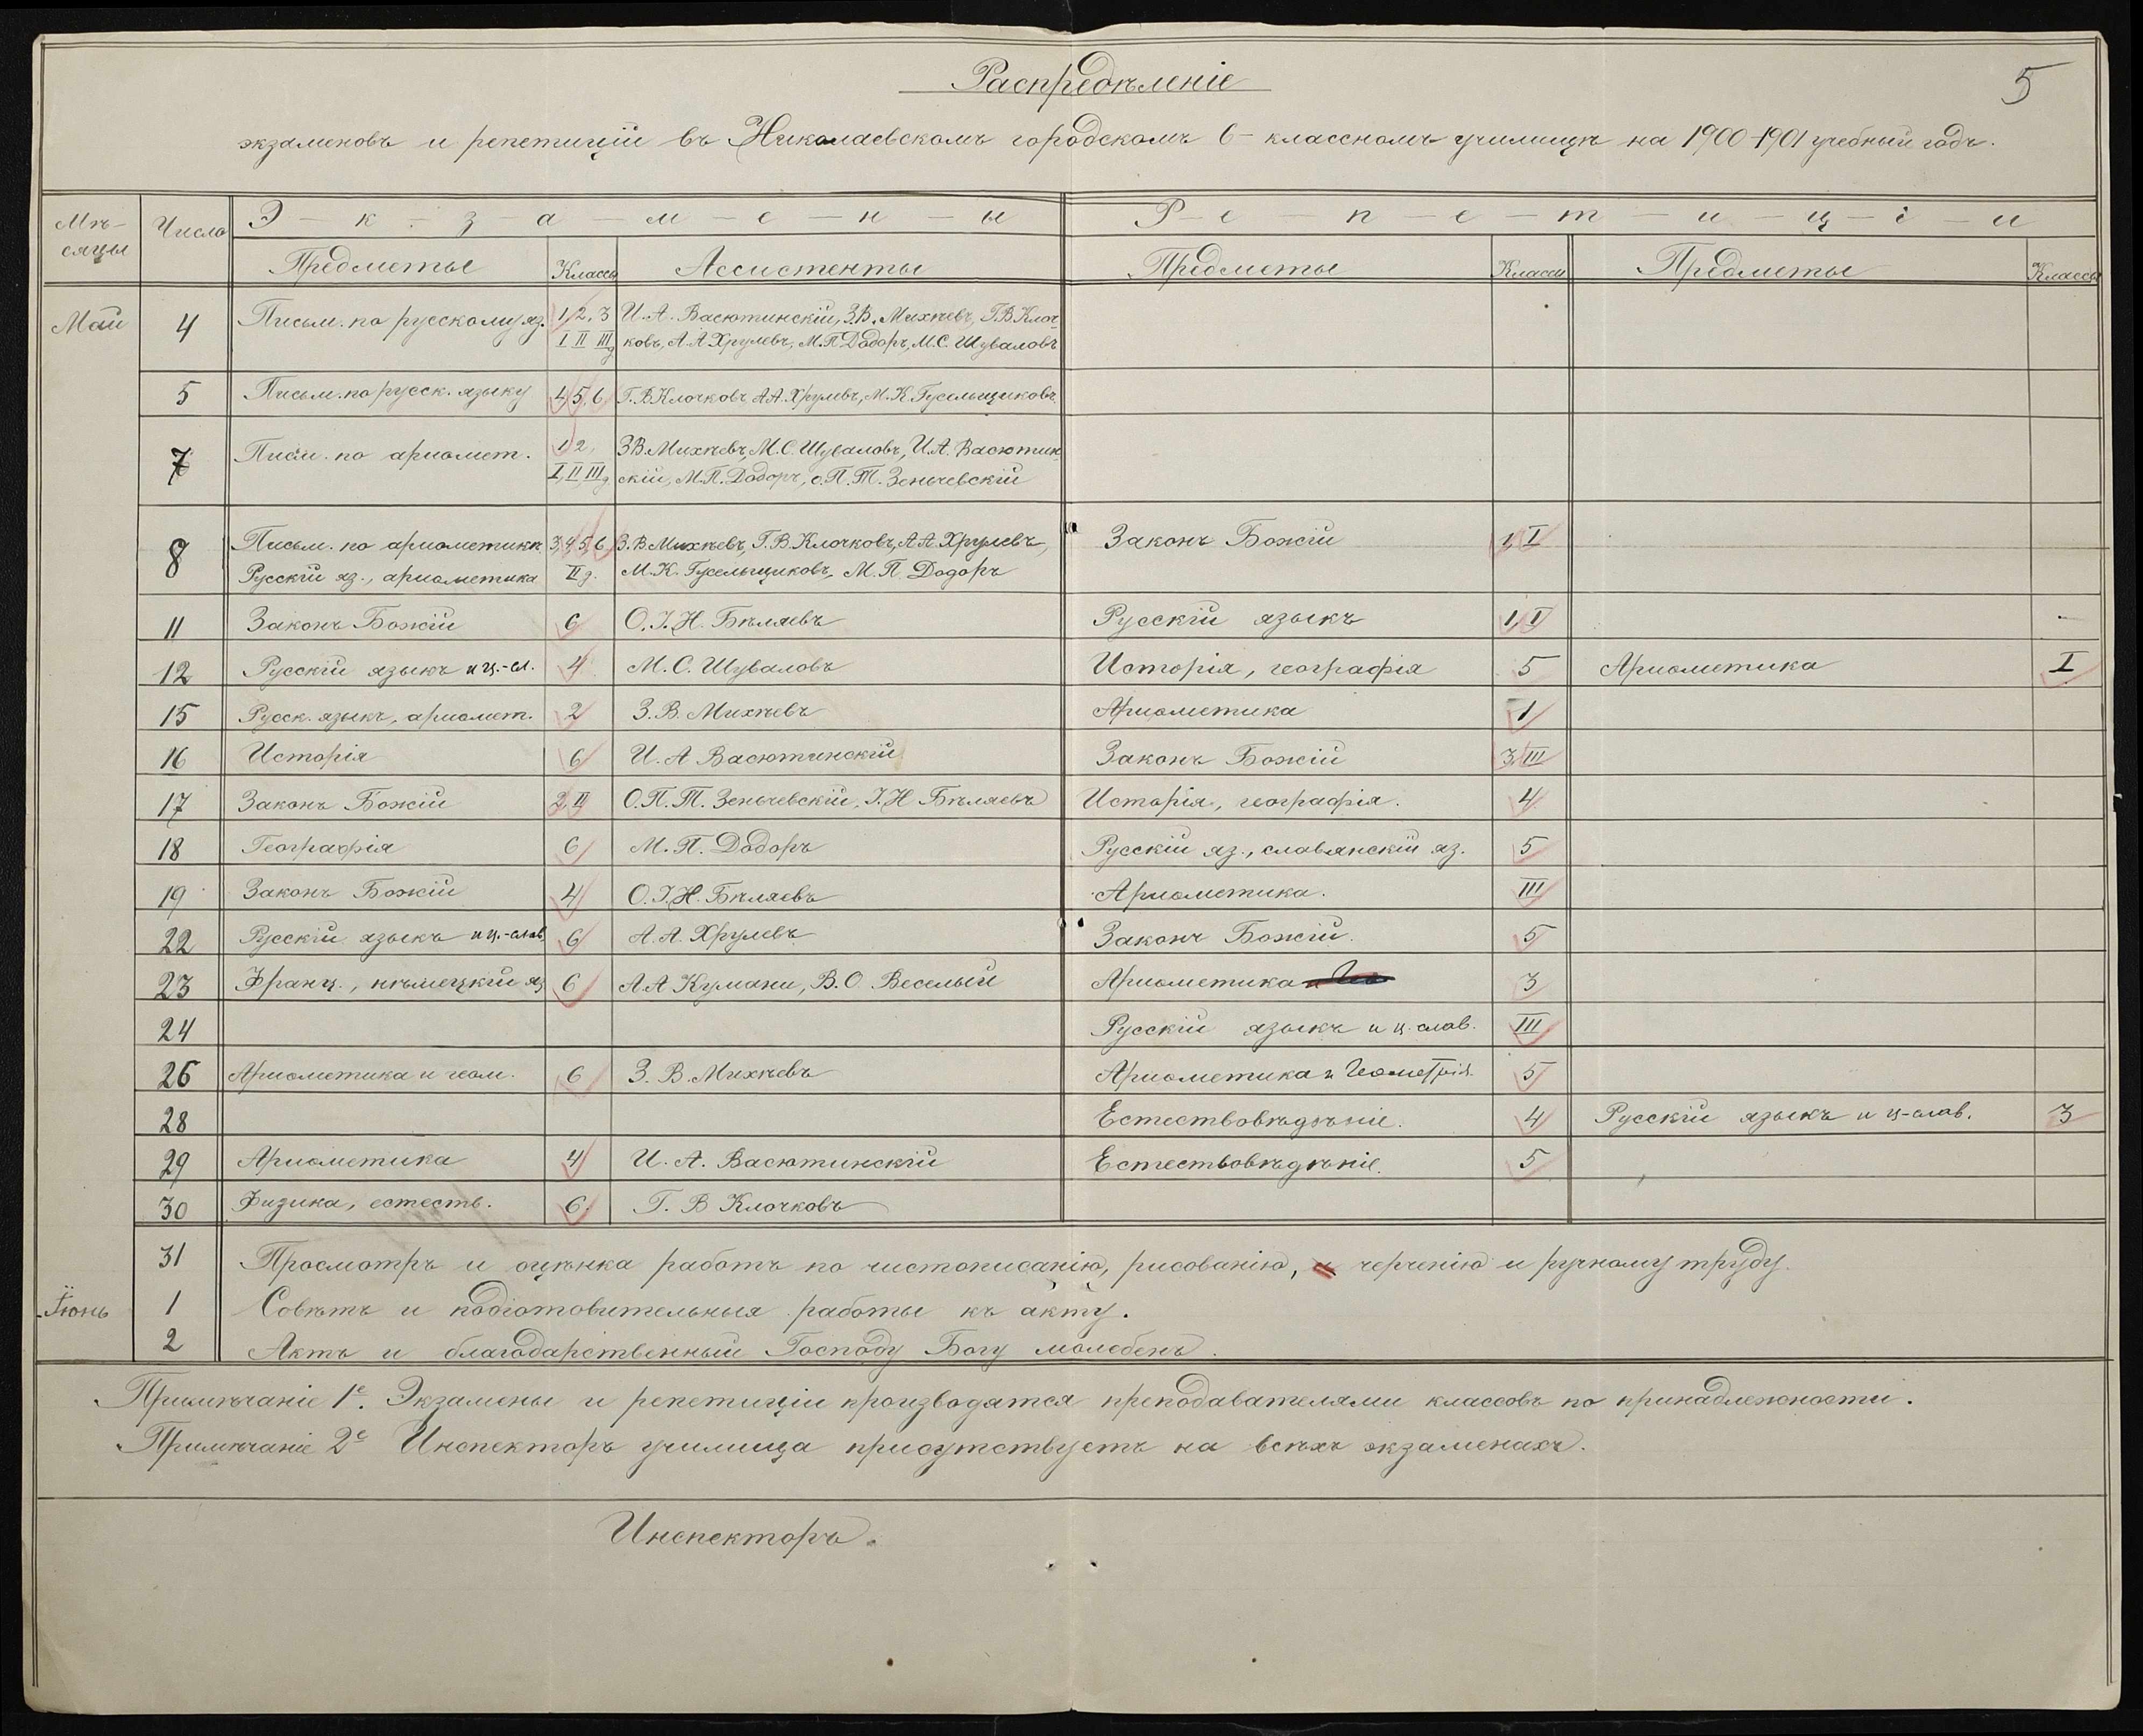 5
Распредѣленіе
экзаменовъ и репетицій въ Николаевскомъ городскомъ 6-классномъ училищѣ на 1900-1901 учебный годъ.
Мѣ-сяцы Число Э-к-з-а-м-е-н-ы Р-е-п-е-т-и-ц-і-и
Предметы Классы Ассистенты Предметы Классы Предметы Классы
Май 4 Письм. по русскому яз. 1, 2, 3 И. А. Васютинскій, З.В. Михѣевъ, Г.В. Клоч-
I II III д ковъ, А.А. Хрулевъ, М.П. Додоръ, М.С. Шуваловъ
5 Письм. по русск. языку 4, 5, 6 Г.В. Клочковъ, А.А. Хрулевъ, М.К. Гусельщиковъ.
7 Письм. по ариѳмет. 1, 2, З.В. Михѣевъ, М.С. Шуваловъ, И.А. Васютин-
I, II, III д скій, М.П. Додоръ, о. П. Т. Зеньчевскій
8 Письм. по ариѳметикѣ 3, 4, 5, 6 З.В. Михѣевъ, Г.В. Клочковъ, А.А. Хрулевъ, Законъ Божій 1, I
Русскій яз., ариѳметика II д. М.К. Гусельщиковъ, М.П. Додоръ
11 Законъ Божій 6 О. І. Н. Бѣляевъ Русскій языкъ 1, I
12 Русскій языкъ и ц.-сл. 4 М. С. Шуваловъ Исторія, географія 5 Ариѳметика I
15 Русск. языкъ, ариѳмет. 2 З. В. Михѣевъ Ариѳметика 1
16 Исторія 6 И. А Васютинскій Законъ Божій 3, III
17 Законъ Божій 2, II О. П. Т. Зеньчевскій, І. Н Бѣляевъ Исторія, географія. 4
18 Географія 6 М. П. Додоръ Русскій яз., славянскій яз. 5
19 Законъ Божій 4 О. І. Н. Бѣляевъ Ариѳметика. III
22 Русскій языкъ и ц.-слав. 6 А. А. Хрулевъ Законъ Божій. 5
23 Франц., нѣмецкій яз 6 А А Кумани, В. О Веселый Ариѳметика 3
24 Русскій языкъ и ц. слав. III
26 Ариѳметика и геом. 6 З. В. Михѣевъ Ариѳметика и Геометрія. 5
28 Естествовѣдѣніе. 4 Русскій языкъ и ц-слав. 3
29 Ариѳметика 4 И. А. Васютинскій Естествовѣдѣніе. 5
30 Физика, естеств. 6. Г. В Клочковъ
31 Просмотръ и оцѣнка работъ по чистописанію, рисованію, и черченію и ручному труду.
Іюнь 1 Совѣтъ и подготовительныя работы къ акту.
2 Актъ и благодарственный Господу Богу молебенъ.
Примѣчаніе 1е. Экзамены и репетиціи производятся преподавателями классовъ по принадлежности.
Примѣчаніе 2е Инспекторъ училища присутствуетъ на всѣхъ экзаменахъ.
Инспекторъ.